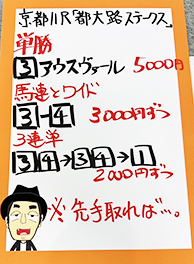 京都11R「都大路ステークス」
単勝
3 アウスヴァール 5000円
馬連とワイド
3-4 3000円ずつ
3連単
3 4→3 4→1
2000円ずつ
※先手取れば…。